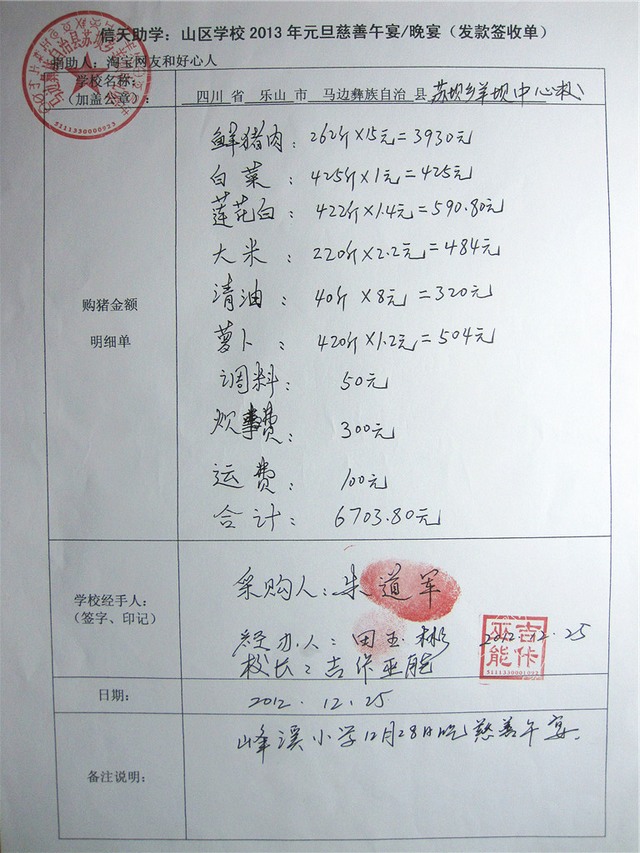 信天助学：山区学校2013年元旦慈善午宴/晚宴（发款签收单）
捐助人：淘宝网友和好心人
学校名称：
（加盖公章）：
四川 省 乐山 市 马边彝族自治 县 苏坝乡羊坝中心校
购猪金额
明细单
鲜猪肉：262斤×15元=3930元
白菜：425斤×1元=425元
莲花白：422斤×1.4元=590.80元
大米：220斤×2.2元=484元
清油：40斤×8元=320元
萝卜：420斤×1.2元=504元
调料：50元
炊事费：300元
运费：100元
合计：6703.80元
学校经手人：
（签字、印记）
采购人：朱道军
经办人：田玉彬 2012.12.25
校长：吉作巫能
吉作巫能
5111330001093
5111330000933
日期：
2012.12.25
备注说明：
峰溪小学12月28日吃慈善午宴.